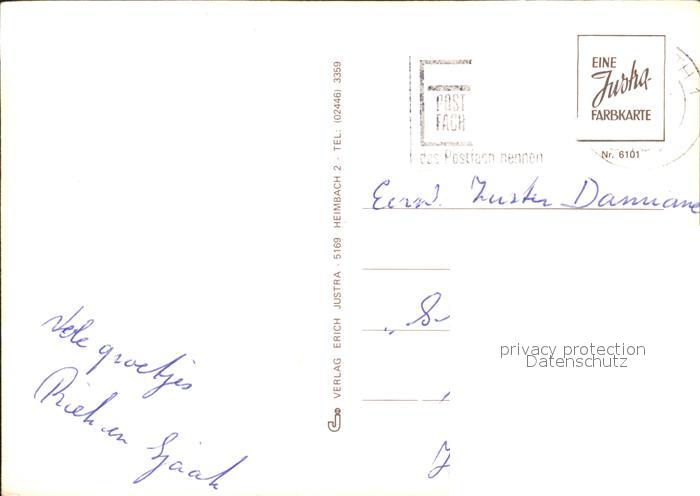 EINE
Justra-
FARBKARTE
Nr. 6101
TH 1
POST
FACH
das Postfach nennen
VERLAG ERICH JUSTRA · 5169 HEIMBACH 2 · TEL: (02446) 3359
Eerw. Zuster Damiane
„S
privacy protection
Datenschutz
Vele groetjes
Riek en Sjaak